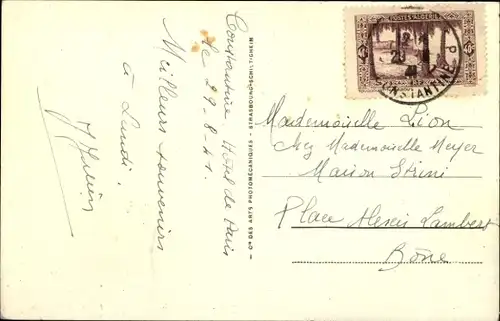 Constantine Hôtel de Paris
le 29-8-41.
Meilleurs souvenirs
à Lundi.
Cie DES ARTS PHOTOMÉCANIQUES - STRASBOURG-SCHILTIGHEIM
POSTES ALGÉRIE
CONSTANTINE
Mademoiselle Lion
chez Mademoiselle Meyer
Maison Strini
Place Alexis Lambert
Bône